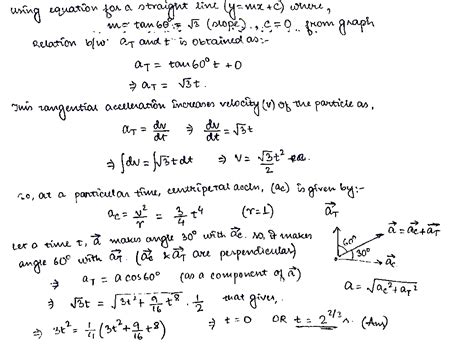 using equation for a straight line (y=mx+c) where,
m= tan60° = √3 (slope), c=0 from graph
Relation b/w a_T and t is obtained as:-
a_T = tan60° t + 0
⇒ a_T = √3t.
This tangential acceleration increases velocity (v) of the particle as,
a_T = dv/dt ⇒ dv/dt = √3t
⇒ ∫dv = ∫√3t dt ⇒ v = √3t²/2
So, at a particular time, centripetal accln, (ac) is given by:-
ac = v²/r = 3/4 t⁴ (r=1)
Let a time t, a⃗ makes angle 30° with a⃗c. so, it makes
angle 60° with a⃗T. (a⃗c & a⃗T are perpendicular)
a⃗T
60°
30°
a⃗ = a⃗c + a⃗T
a⃗c
⇒ a_T = a cos60° (as a component of a⃗)
a = √(ac² + a_T²)
⇒ √3t = √(3t² + 9/16 t⁸) . 1/2 that gives,
⇒ 3t² = 1/4 (3t² + 9/16 t⁸) ⇒ t = 0 OR t = 2^(2/3) s. (Ans)